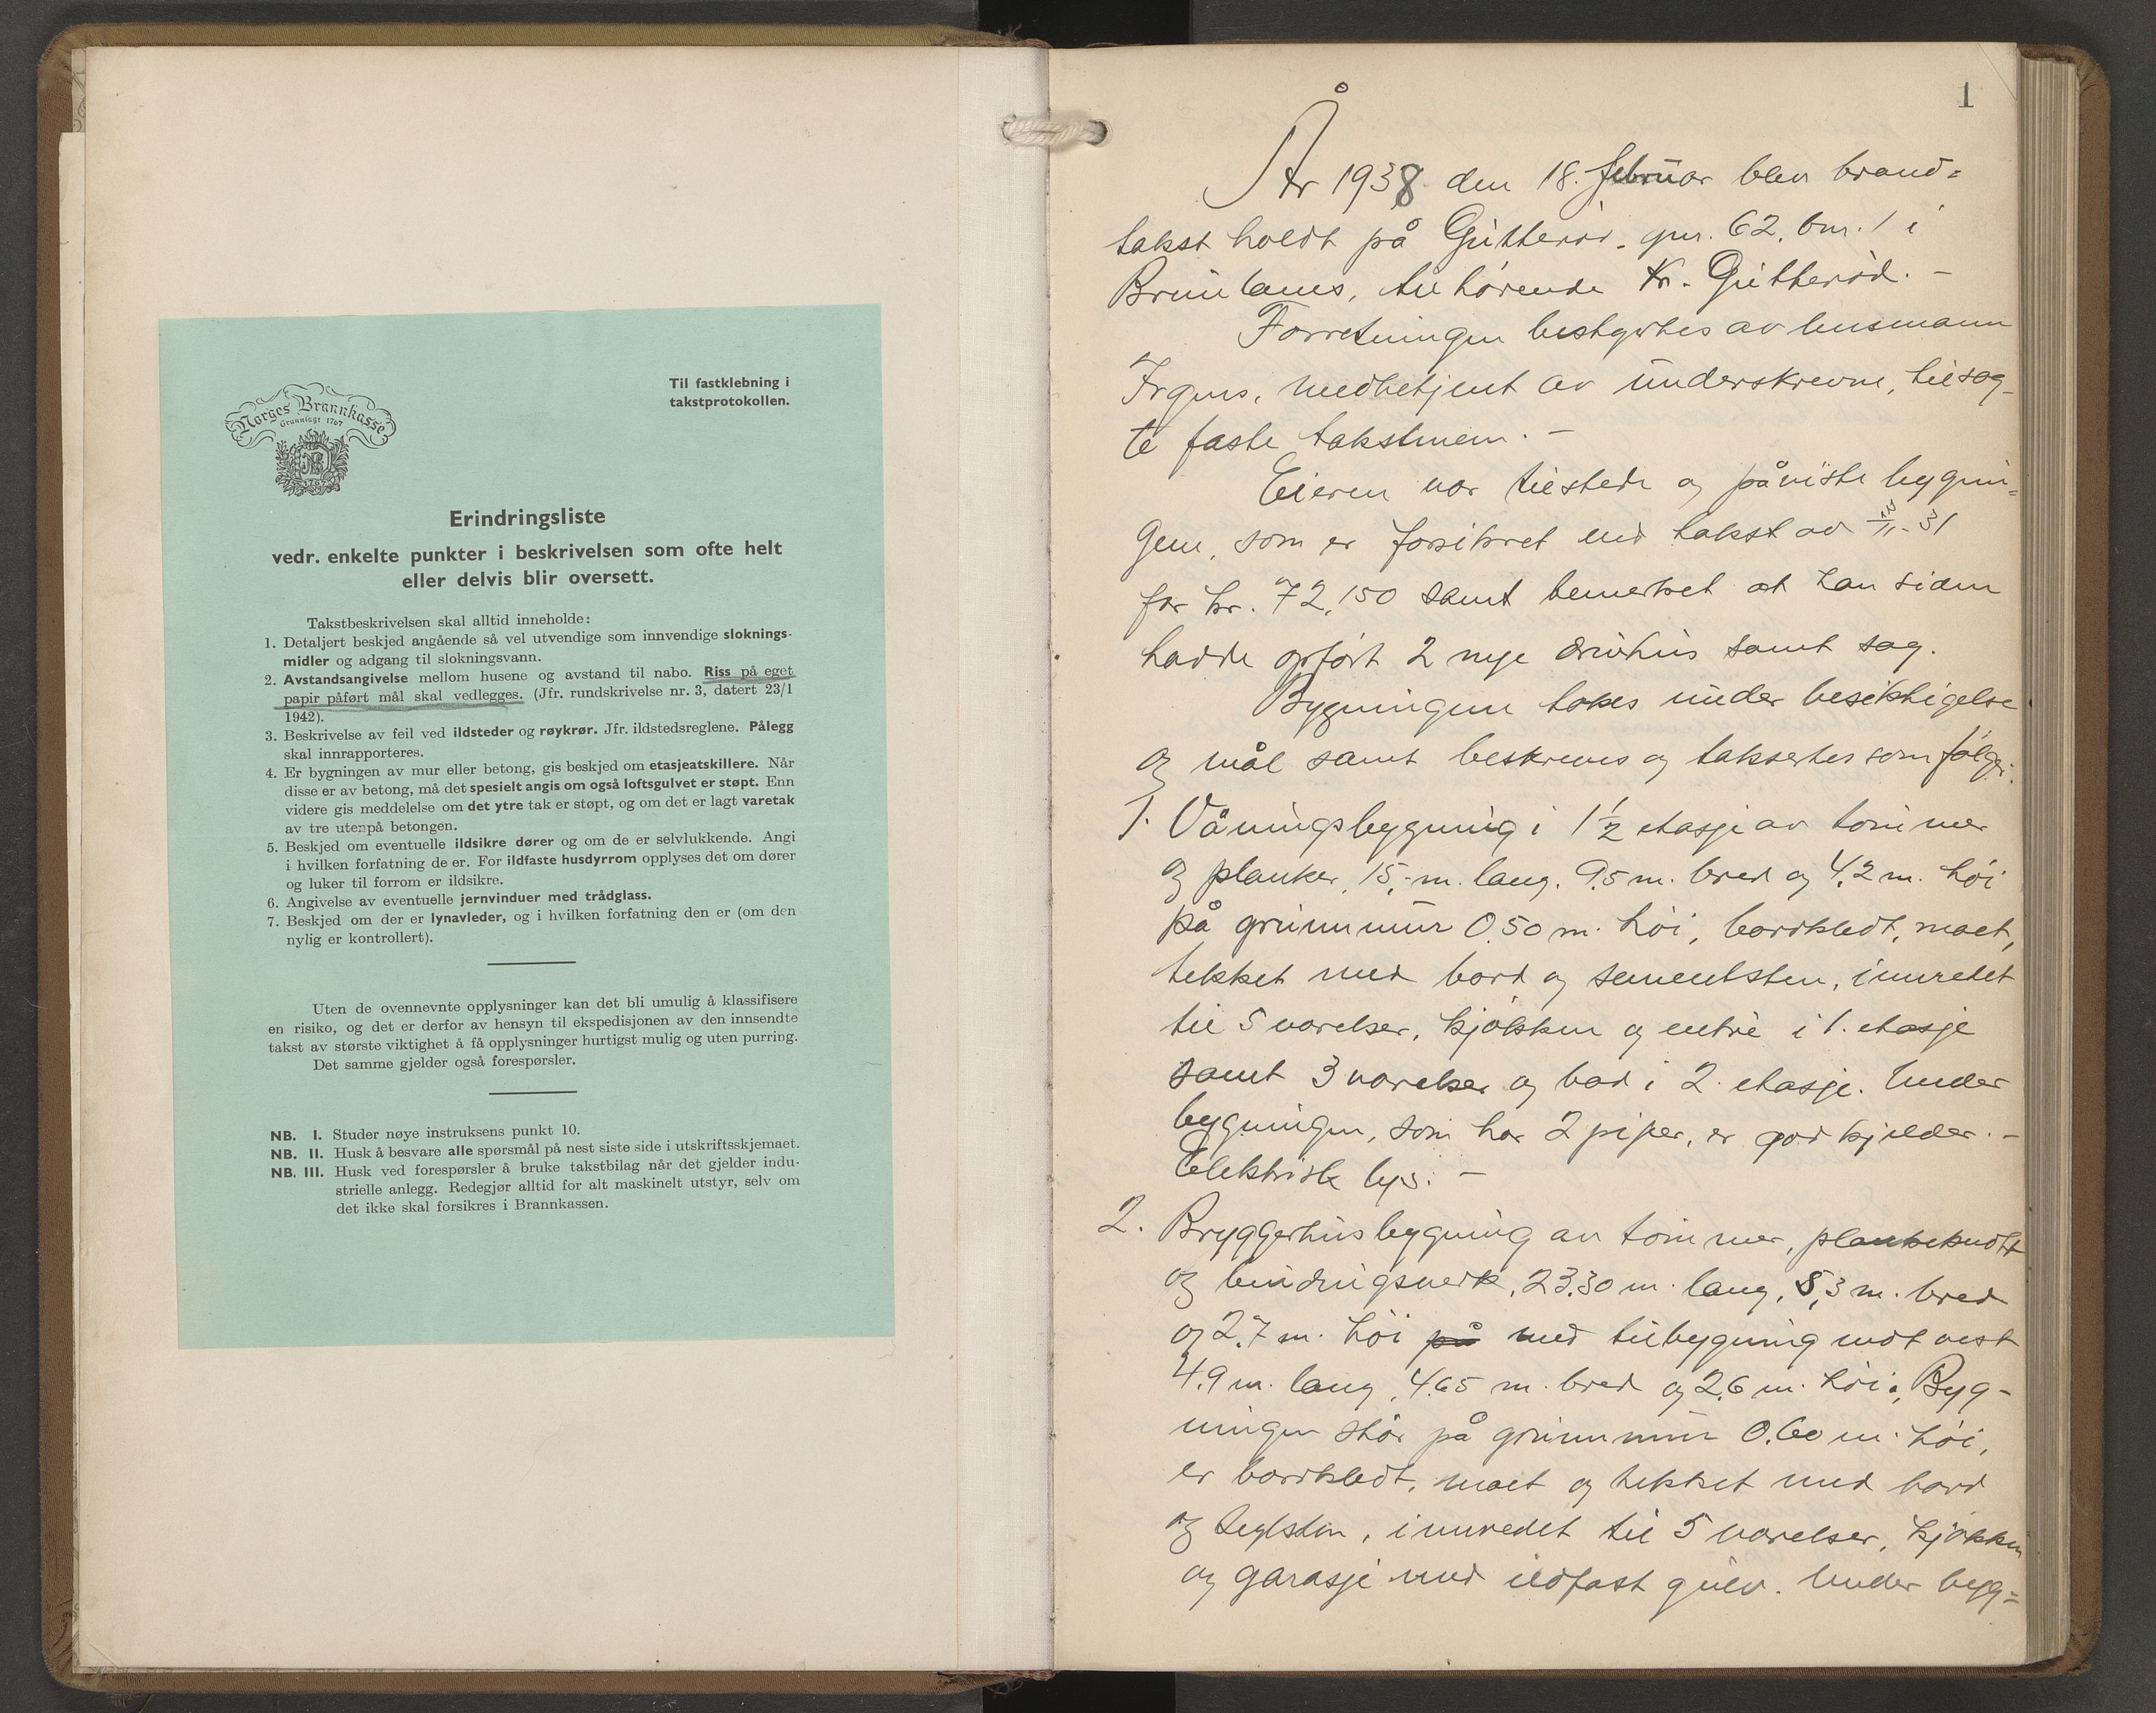 Til fastklebning i
takstprotokollen.
Norges Brannkasse
Grunnlagt 1767
1767
Erindringsliste
vedr. enkelte punkter i beskrivelsen som ofte helt
eller delvis blir oversett.
Takstbeskrivelsen skal alltid inneholde:
1. Detaljert beskjed angående så vel utvendige som innvendige sloknings-
midler og adgang til slokningsvann.
2. Avstandsangivelse mellom husene og avstand til nabo. Riss på eget
papir påført mål skal vedlegges. (Jfr. rundskrivelse nr. 3, datert 23/1
1942).
3. Beskrivelse av feil ved ildsteder og røykrør. Jfr. ildstedsreglene. Pålegg
skal innrapporteres.
4. Er bygningen av mur eller betong, gis beskjed om etasjeatskillere. Når
disse er av betong, må det spesielt angis om også loftsgulvet er støpt. Enn
videre gis meddelelse om det ytre tak er støpt, og om det er lagt varetak
av tre utenpå betongen.
5. Beskjed om eventuelle ildsikre dører og om de er selvlukkende. Angi
i hvilken forfatning de er. For ildfaste husdyrrom opplyses det om dører
og luker til forrom er ildsikre.
6. Angivelse av eventuelle jernvinduer med trådglass.
7. Beskjed om der er lynavleder, og i hvilken forfatning den er (om den
nylig er kontrollert).
Uten de ovennevnte opplysninger kan det bli umulig å klassifisere
en risiko, og det er derfor av hensyn til ekspedisjonen av den innsendte
takst av største viktighet å få opplysninger hurtigst mulig og uten purring.
Det samme gjelder også forespørsler.
NB. I. Studer nøye instruksens punkt 10.
NB. II. Husk å besvare alle spørsmål på nest siste side i utskriftsskjemaet.
NB. III. Husk ved forespørsler å bruke takstbilag når det gjelder indu-
strielle anlegg. Redegjør alltid for alt maskinelt utstyr, selv om
det ikke skal forsikres i Brannkassen.
1
År 1938 den 18. februar blev brand=
takst holdt på Gutterød. gnr. 62, bnr. 1 i
Brunlanes, tilhørende Kr. Gutterød. -
Forretningen bestyrtes av lensmann
Irgens, medbetjent av underskrevne, tilsog-
te faste takstmenn. -
Eieren var tilstede og påviste bygnin=
gene, som er forsikret ved takst av -31
for kr. 72,150 samt bemerket at han siden
hadde opført 2 nye drivhus samt sag.
Bygningene tokes under besiktigelse
og mål samt beskrevs og taksertes som følger.
1. Våningsbygning i 1 1/2 etasje av tømmer
og planker, 15,- m. lang. 9,5 m. bred og 4,2 m. høi
på grunnmur 0.50 m. høi, bordkledt, malt,
tekket med bord og sementsten, innredet
til 5 værelser, kjøkken og entré i 1. etasje
samt 3 værelser og bad i 2. etasje. Under
bygningen, som har 2 piper, er god kjelder. -
Elektrisk lys. -
2. Bryggerhusbygning av tømmer, plankeknott
og bindingsverk, 23.30 m. lang, 8,3 m. bred
og 2.7 m. høi på med tilbygning mot vest
4.9 m. lang, 4.65 m. bred og 2.6 m. høi. Byg-
ningen står på grunnmur 0.60 m. høi,
er bordkledt, malt og tekket med bord
og teglsten, innredet til 5 værelser, kjøkken
og garasje med ildfast gulv. Under bygg=